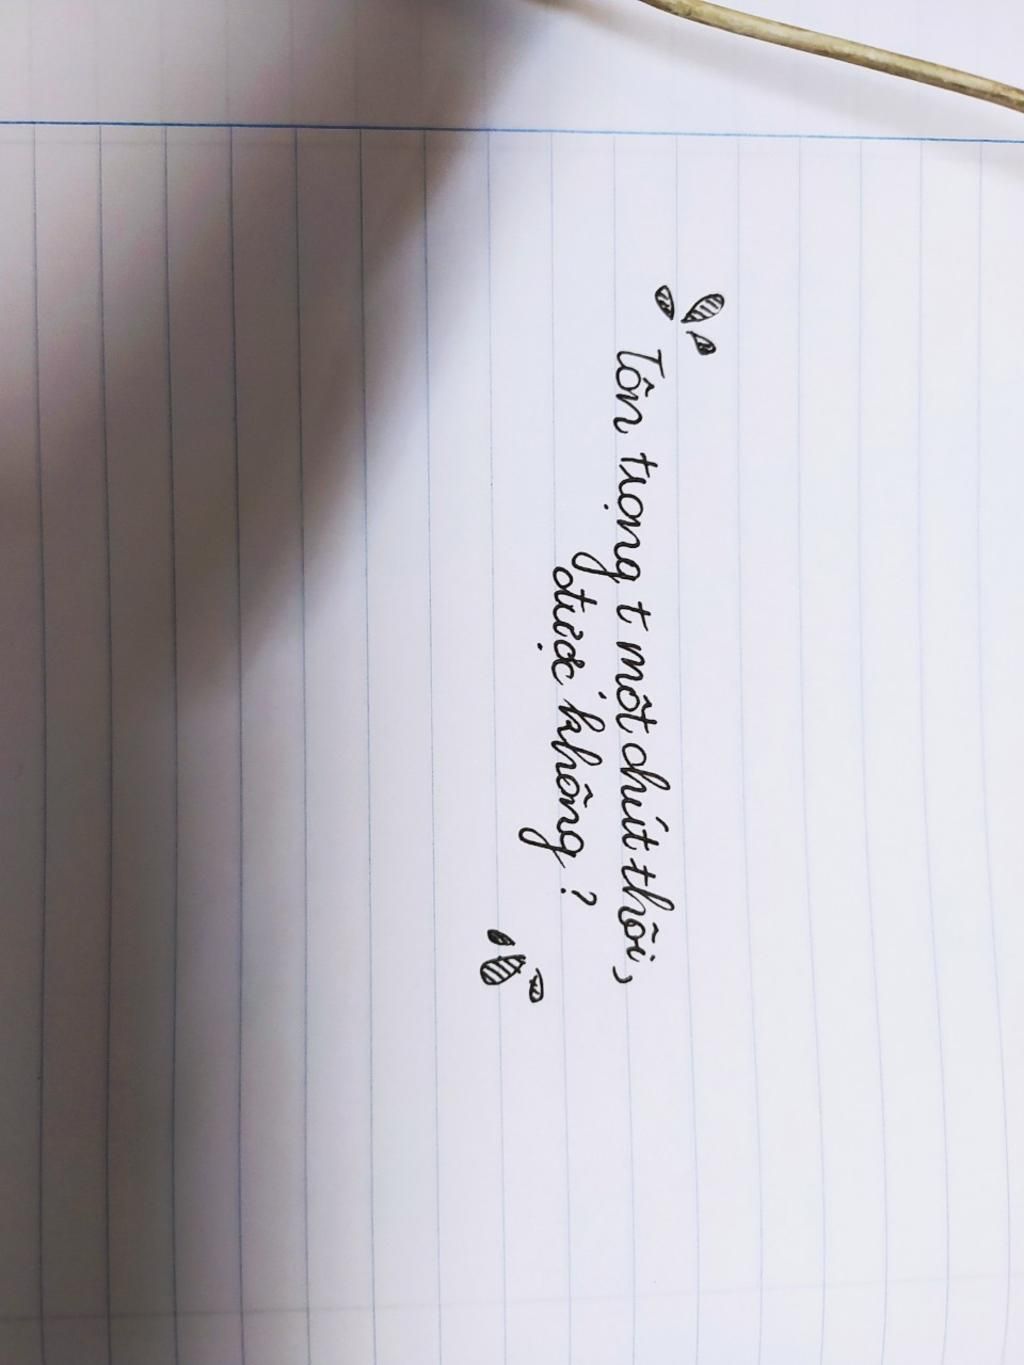 Tôn trọng t một chút thôi,
được không?